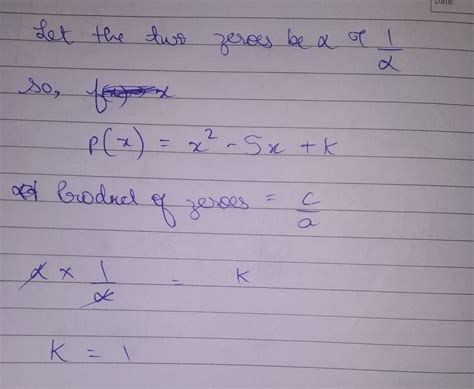 Date:
Let the two zeroes be α & 1/α
so,
p(x) = x² - 5x + k
Product of zeroes = c/a
α × 1/α = K
K = 1